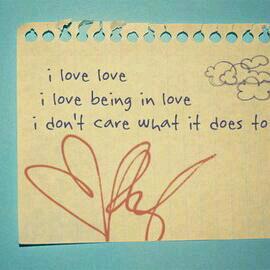 i love love
i love being in love
i don't care what it does to